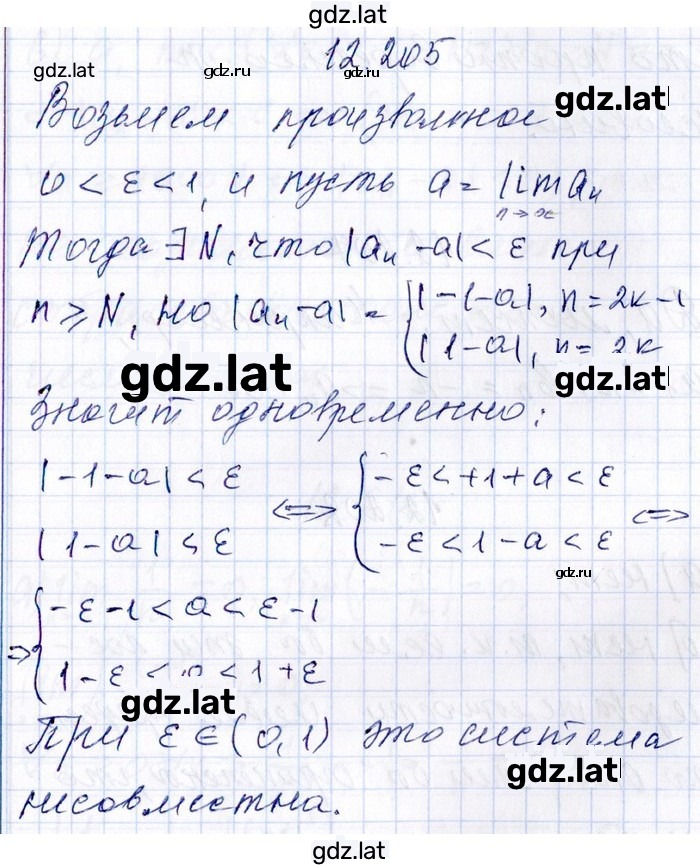 gdz.lat
12 205
gdz.lat
gdz.lat
gdz.lat
Возьмем произвольное
0 < ε < 1, и пусть a = lim aₙ
n→∞
Тогда ∃ N, что |aₙ - a| < ε при
n ⩾ N, но |aₙ - a| = { |-1-a|, n = 2k-1
|1-a|, n = 2k
gdz.lat
gdz.lat
Значит одновременно:
|-1-a| < ε
|1-a| < ε
⇔ { -ε < +1 + a < ε
-ε < 1 - a < ε ⇔
gdz.lat
⇒ { -ε - 1 < a < ε - 1
1 - ε < a < 1 + ε
gdz.lat
При ε ∈ (0,1) это система
gdz.lat
несовместна.
gdz.lat